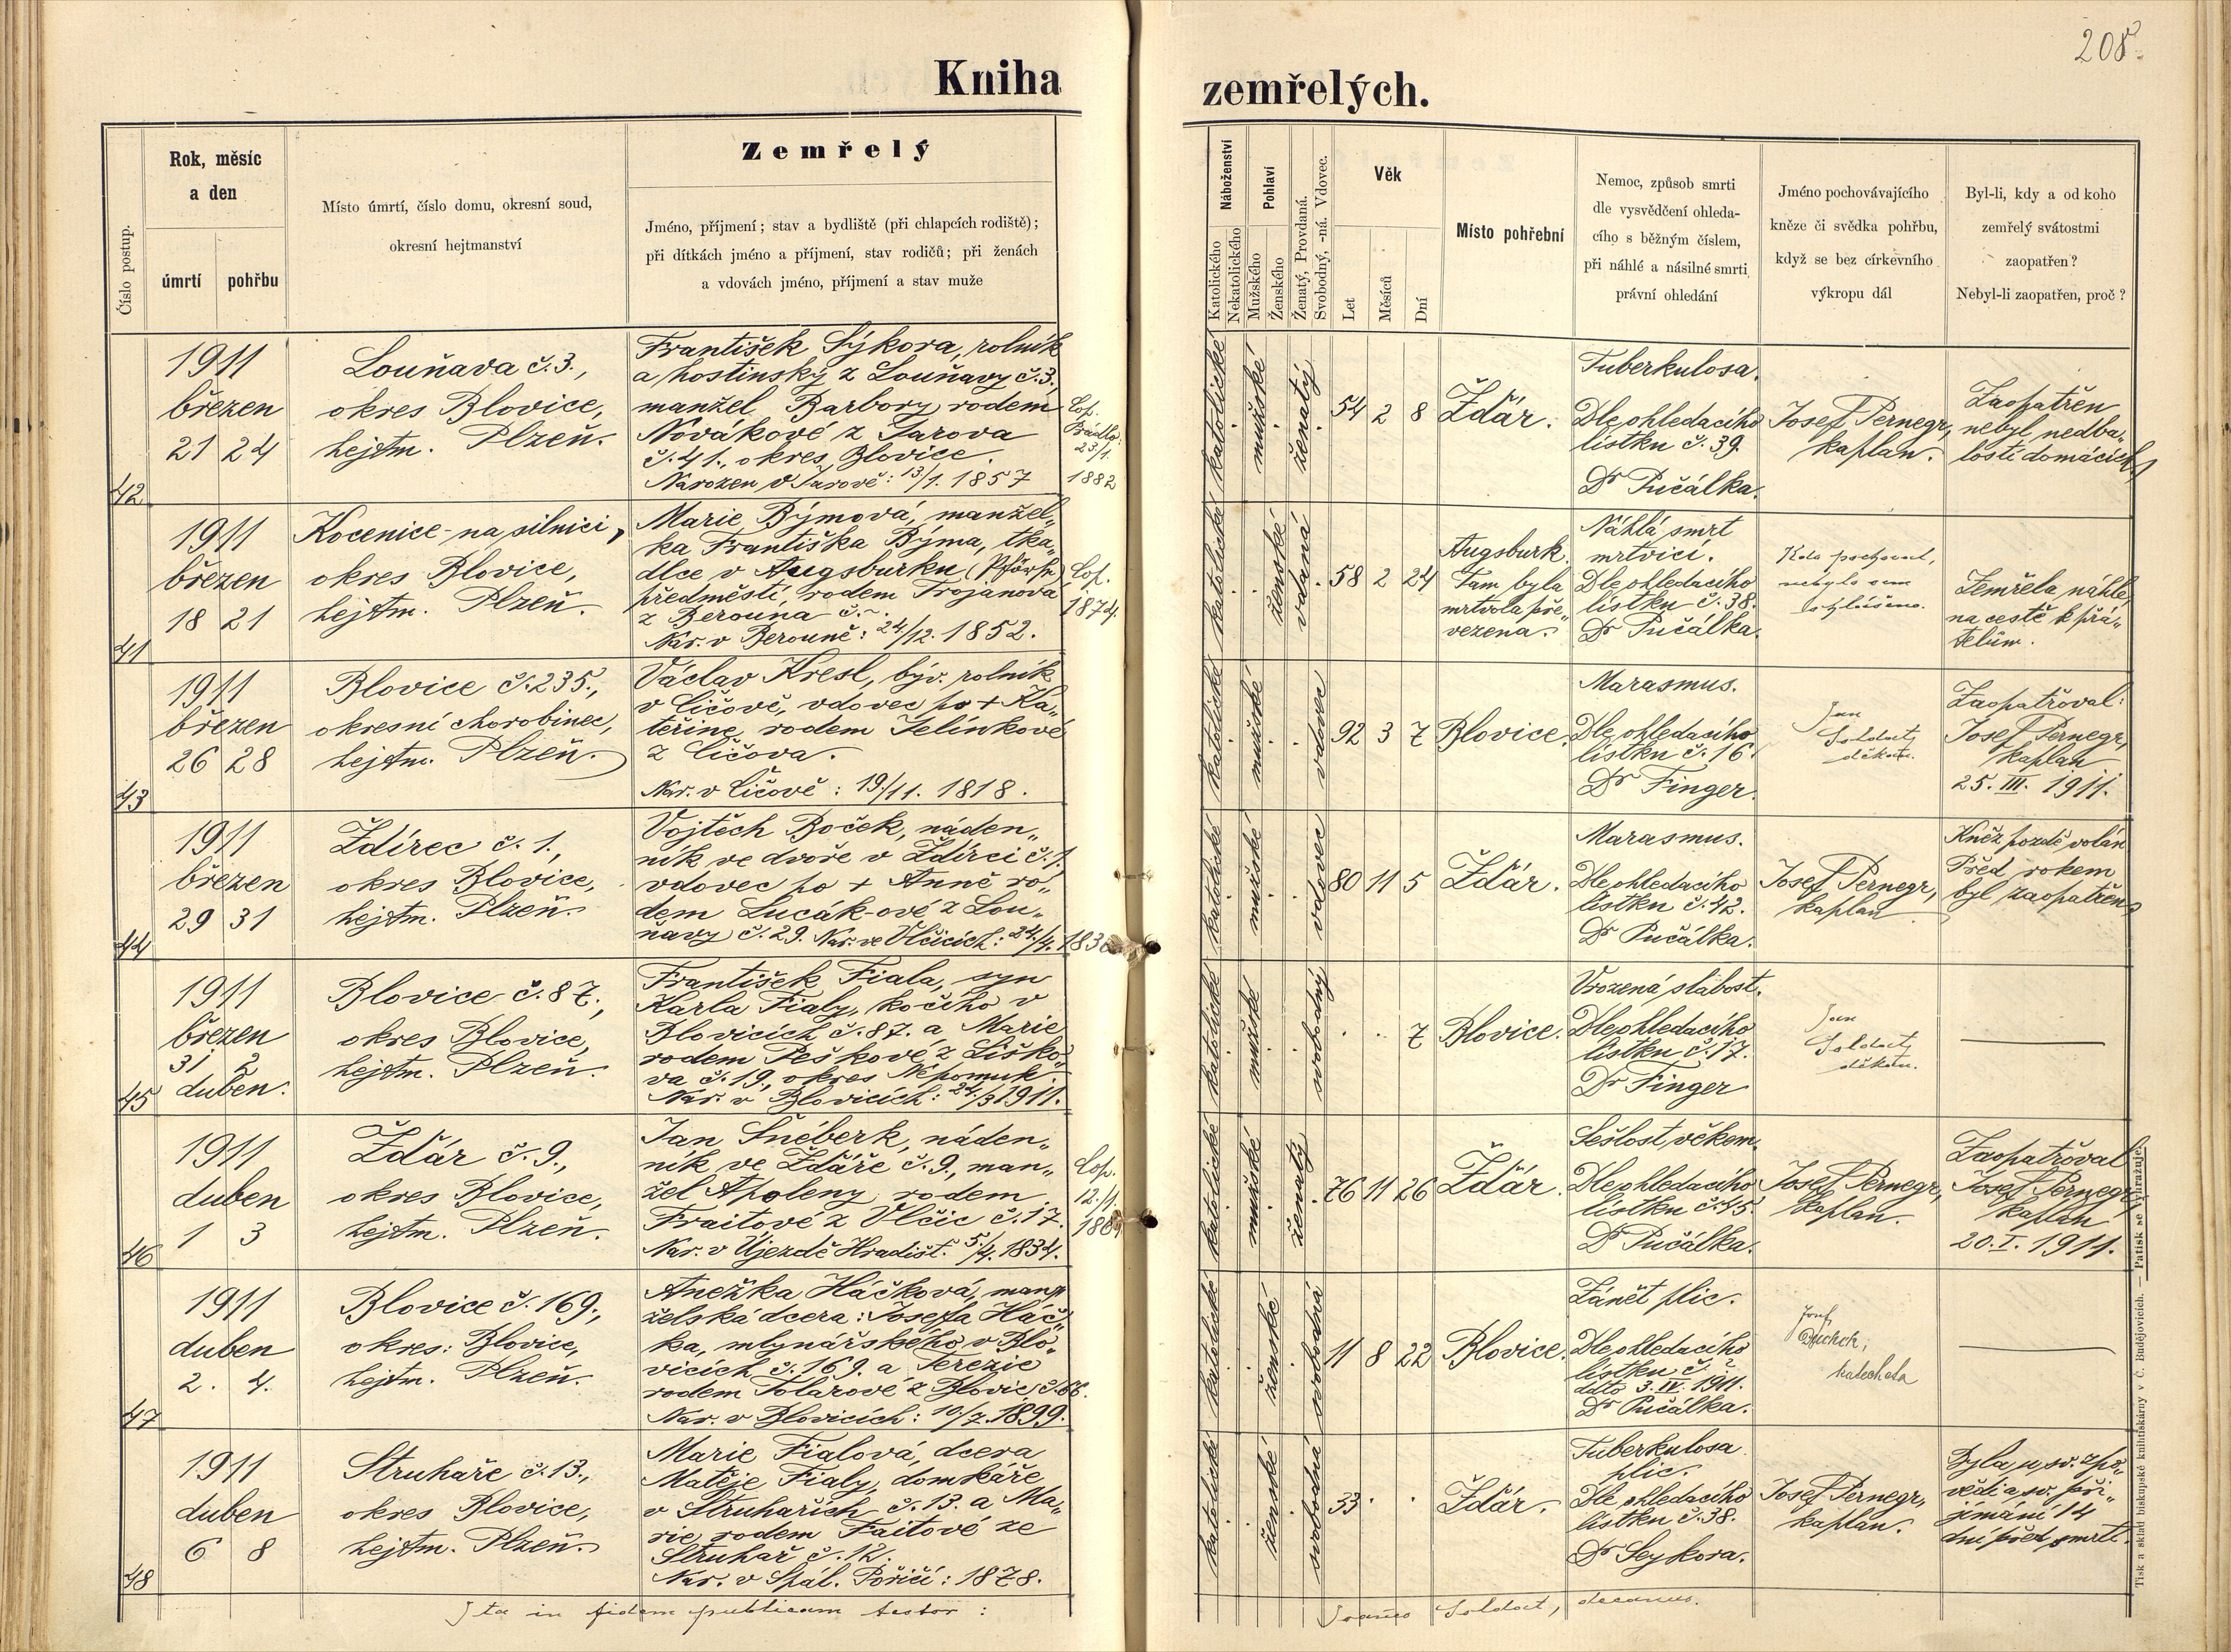 208
Kniha zemřelých.
Číslo postup.
Rok, měsíc
a den
úmrtí
pohřbu
Místo úmrtí, číslo domu, okresní soud,
okresní hejtmanství
Zemřelý
Jméno, příjmení; stav a bydliště (při chlapcích rodiště);
při dítkách jméno a příjmení, stav rodičů; při ženách
a vdovách jméno, příjmení a stav muže
Náboženství
Katolického
Nekatolického
Pohlaví
Mužského
Ženského
Ženatý, Provdaná.
Svobodný, -ná. Vdovec.
Věk
Let
Měsíců
Dní
Místo pohřební
Nemoc, způsob smrti
dle vysvědčení ohleda-
cího s běžným číslem,
při náhlé a násilné smrti
právní ohledání
Jméno pochovávajícího
kněze či svědka pohřbu,
když se bez církevního
výkropu dál
Byl-li, kdy a od koho
zemřelý svátostmi
zaopatřen?
Nebyl-li zaopatřen, proč?
42
1911
březen
21 24
Louňava č. 3.,
okres Blovice,
hejtm. Plzeň.
František Sýkora, rolník
a hostinský z Louňavy č. 3.,
manžel Barbory rodem
Novákové z Jarova
č. 41., okres Blovice.
Narozen v Jarově: 13/1. 1857
Cop.
23/1.
1882
katolické
mužské
ženatý
54 2 8
Žďár.
Tuberkulosa.
Dle ohledacího
lístku č. 39.
Dr Pučálka.
Josef Pernegr,
kaplan.
Zaopatřen
nebyl nedba„
lostí domácích
41
1911
březen
18 21
Kocenice - na silnici,
okres Blovice,
hejtm. Plzeň.
Marie Býmová, manžel„
ka Františka Býma, tka„
dlce v Augsburku
předměstí, rodem Trojanova
z Berouna č. ~.
Nar. v Berouně: 24/12. 1852.
Cop.
1874.
katolické
ženské
vdaná
58 2 24
Augsburk.
Tam byla
mrtvola pře„
vezena.
Náhlá smrt
mrtvicí.
Dle ohledacího
lístku č. 38.
Dr Pučálka.
Kdo pochoval,
nebylo sem
ohlášeno.
Zemřela náhle
na cestě k přá„
telům.
43
1911
březen
26 28
Blovice č. 235.,
okresní chorobinec,
hejtm. Plzeň.
Václav Kresl, býv. rolník
v Číčově, vdovec po + Ka„
teřině rodem Jelínkové
z Číčova.
Nar. v Číčově: 19/11. 1818.
katolické
mužské
vdovec
92 3 7
Blovice.
Marasmus.
Dle ohledacího
lístku č. 16.
Dr Finger.
Jan
Soldact,
děkan.
Zaopatřoval:
Josef Pernegr,
kaplan
25. III. 1911.
44
1911
březen
29 31
Ždírec č. 1.,
okres Blovice,
hejtm. Plzeň.
Vojtěch Boček, náden„
ník ve dvoře v Ždírci č. 1.
vdovec po + Anně ro„
dem Lucák-ové z Lou„
ňavy č. 29. Nar. ve Vlčicích: 24/4. 1830
katolické
mužské
vdovec
80 11 5
Žďár.
Marasmus.
Dle ohledacího
lístku č. 42.
Dr Pučálka.
Josef Pernegr,
kaplan
Kněz pozdě volán
Před rokem
byl zaopatřen
45
1911
březen
31 2
duben.
Blovice č. 87.,
okres Blovice,
hejtm. Plzeň.
František Fiala, syn
Karla Fialy, kočího v
Blovicích č. 87. a Marie
rodem Peškové z Liško„
va č. 19., okres Nepomuk.
Nar. v Blovicích: 24/3 1911.
katolické
mužské
svobodný
7
Blovice.
Vrozená slabost.
Dle ohledacího
lístku č. 17.
Dr Finger
Jan
Soldact,
děkan.
46
1911
duben
1 3
Žďár č. 9.,
okres Blovice,
hejtm. Plzeň.
Jan Šnéberk, náden„
ník ve Žďáře č. 9., man„
žel Apoleny rodem
Fraitové z Vlčic č. 17.
Nar. v Újezdě Hradišt. 5/4. 1834.
Cop.
12./1.
katolické
mužské
ženatý
76 11 26
Žďár.
Sešlost věkem.
Dle ohledacího
lístku č. 45.
Dr Pučálka.
Josef Pernegr,
kaplan.
Zaopatřoval
Josef Pernegr
kaplan
20. I. 1911.
47
1911
duben
2. 4.
Blovice č. 169.,
okres: Blovice,
hejtm. Plzeň.
Anežka Háčková, man„
želská dcera: Josefa Háč„
ka, mlynářského v Blo„
vicích č. 169. a Terezie
rodem Tolarové z Blovic č. 66.
Nar. v Blovicích: 10/7. 1899.
katolické
ženské
svobodná
11 8 22
Blovice.
Zánět plic.
Dle ohledacího
lístku č. ?
dtto 3. IV. 1911.
Dr Pučálka.
Josef
Duchek,
katecheta
48
1911
duben
6 8
Struhaře č. 13.,
okres Blovice,
hejtm. Plzeň.
Marie Fialová, dcera
Matěje Fialy, domkáře
v Struhařích č. 13. a Ma„
rie rodem Faitové ze
Struhař č. 12.
Nar. v Spál. Poříčí: 1878.
katolické
ženské
svobodná
33
Žďár.
Tuberkulosa
plic.
Dle ohledacího
lístku č. 38.
Dr Seykora.
Josef Pernegr,
kaplan.
Byla u sv. zpo„
vědi a sv. při„
jímání 14
dní před smrtí.
Ita in fidem publicam testor:
Joannes Soldact, decanus.
Tisk a sklad biskupské knihtiskárny v Č. Budějovicích. — Patisk se vyhražuje.